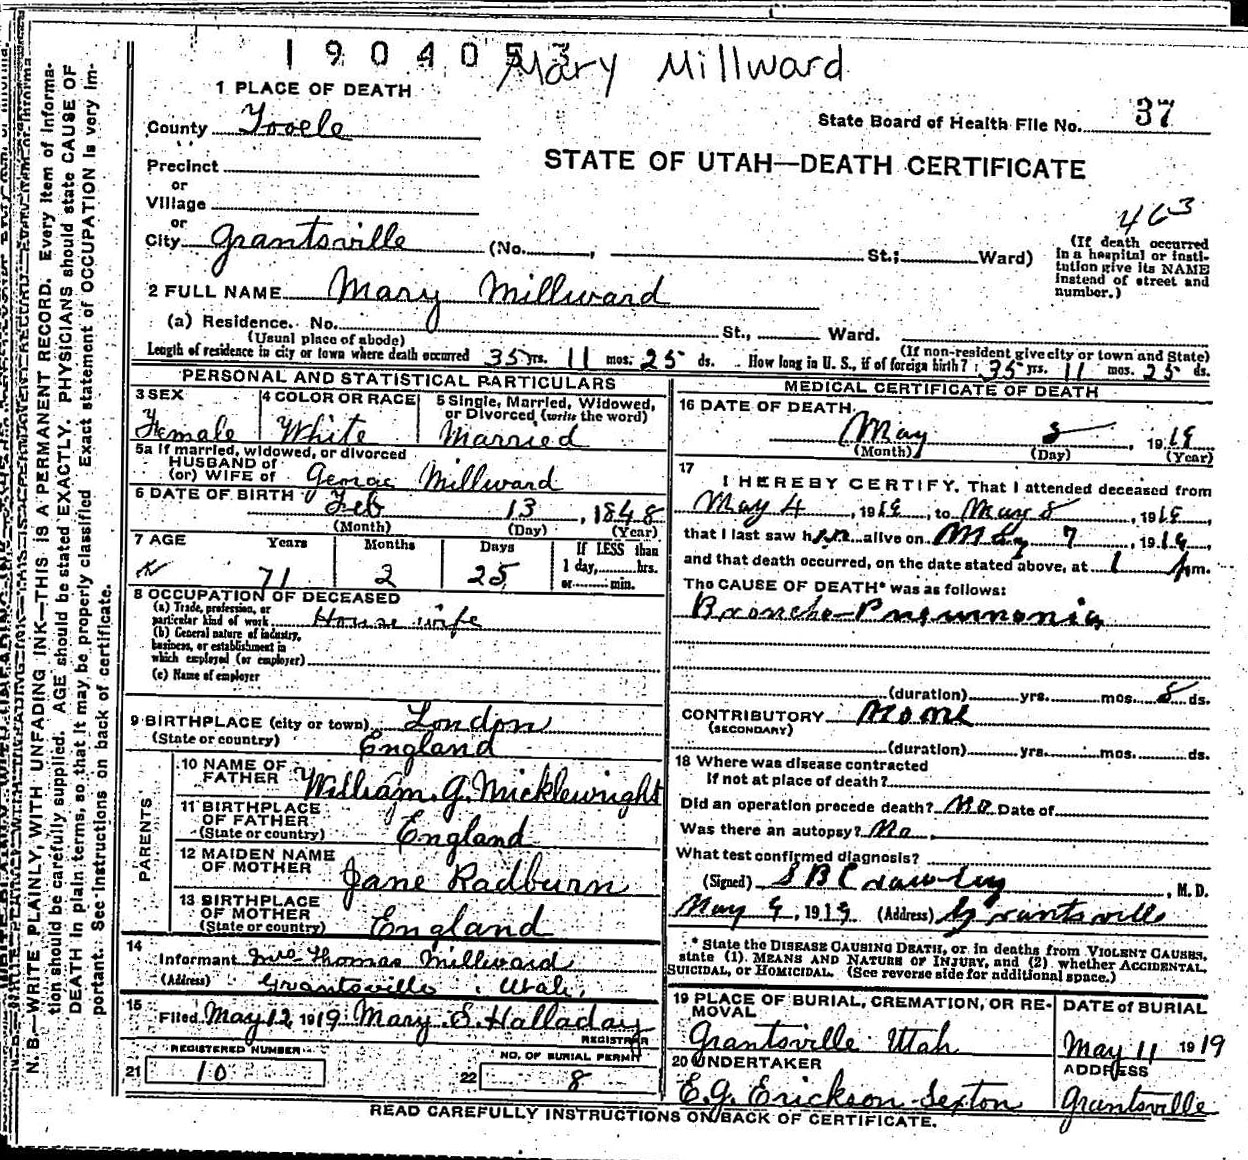 1904053
Mary Millward
1 PLACE OF DEATH
County Tooele
State Board of Health File No. 37
Precinct
STATE OF UTAH—DEATH CERTIFICATE
or
Village
or
463
City Grantsville (No. , St.; Ward)
(If death occurred in a hospital or institution give its NAME instead of street and number.)
2 FULL NAME Mary Millward
(a) Residence. No. St., Ward.
(Usual place of abode)
(If non-resident give city or town and State)
Length of residence in city or town where death occurred 35 yrs. 11 mos. 25 ds. How long in U. S., if of foreign birth? 35 yrs. 11 mos. 25 ds.
PERSONAL AND STATISTICAL PARTICULARS
3 SEX
Female
4 COLOR OR RACE
White
5 Single, Married, Widowed, or Divorced (write the word)
Married
5a If married, widowed, or divorced
HUSBAND of
(or) WIFE of George Millward
6 DATE OF BIRTH Feb 13, 1848
(Month) (Day) (Year)
7 AGE Years Months Days
If LESS than
1 day, hrs.
or min.
71 2 25
8 OCCUPATION OF DECEASED
(a) Trade, profession, or
particular kind of work House wife
(b) General nature of industry,
business, or establishment in
which employed (or employer)
(c) Name of employer
9 BIRTHPLACE (city or town) London
(State or country) England
PARENTS
10 NAME OF
FATHER William. G. Micklewright
11 BIRTHPLACE
OF FATHER
(State or country) England
12 MAIDEN NAME
OF MOTHER Jane Radburn
13 BIRTHPLACE
OF MOTHER
(State or country) England
14
Informant Mrs Thomas Millward
(Address) Grantsville, Utah.
15
Filed May 12 1919 Mary S. Halladay
REGISTRAR
REGISTERED NUMBER
21 10
NO. OF BURIAL PERMIT
22 8
MEDICAL CERTIFICATE OF DEATH
16 DATE OF DEATH
May 8, 1919
(Month) (Day) (Year)
17
I HEREBY CERTIFY, That I attended deceased from
May 4, 1919, to May 8, 1919,
that I last saw her alive on May 7, 1919,
and that death occurred, on the date stated above, at 1 p m.
The CAUSE OF DEATH* was as follows:
Broncho-Pneumonia
(duration) yrs. mos. 8 ds.
CONTRIBUTORY None
(SECONDARY)
(duration) yrs. mos. ds.
18 Where was disease contracted
if not at place of death?
Did an operation precede death? No Date of
Was there an autopsy? No
What test confirmed diagnosis?
(Signed) , M. D.
May 9, 1919 (Address) Grantsville
* State the DISEASE CAUSING DEATH, or, in deaths from VIOLENT CAUSES,
state (1) MEANS AND NATURE OF INJURY, and (2) whether ACCIDENTAL,
SUICIDAL, or HOMICIDAL. (See reverse side for additional space.)
19 PLACE OF BURIAL, CREMATION, OR REMOVAL
Grantsville Utah
DATE of BURIAL
May 11 1919
20 UNDERTAKER
E. G. Erickson Sexton
ADDRESS
Grantsville
READ CAREFULLY INSTRUCTIONS ON BACK OF CERTIFICATE.
N. B.—WRITE PLAINLY, WITH UNFADING INK—THIS IS A PERMANENT RECORD. Every item of information should be carefully supplied. AGE should be stated EXACTLY. PHYSICIANS should state CAUSE OF DEATH in plain terms, so that it may be properly classified. Exact statement of OCCUPATION is very important. See instructions on back of certificate.